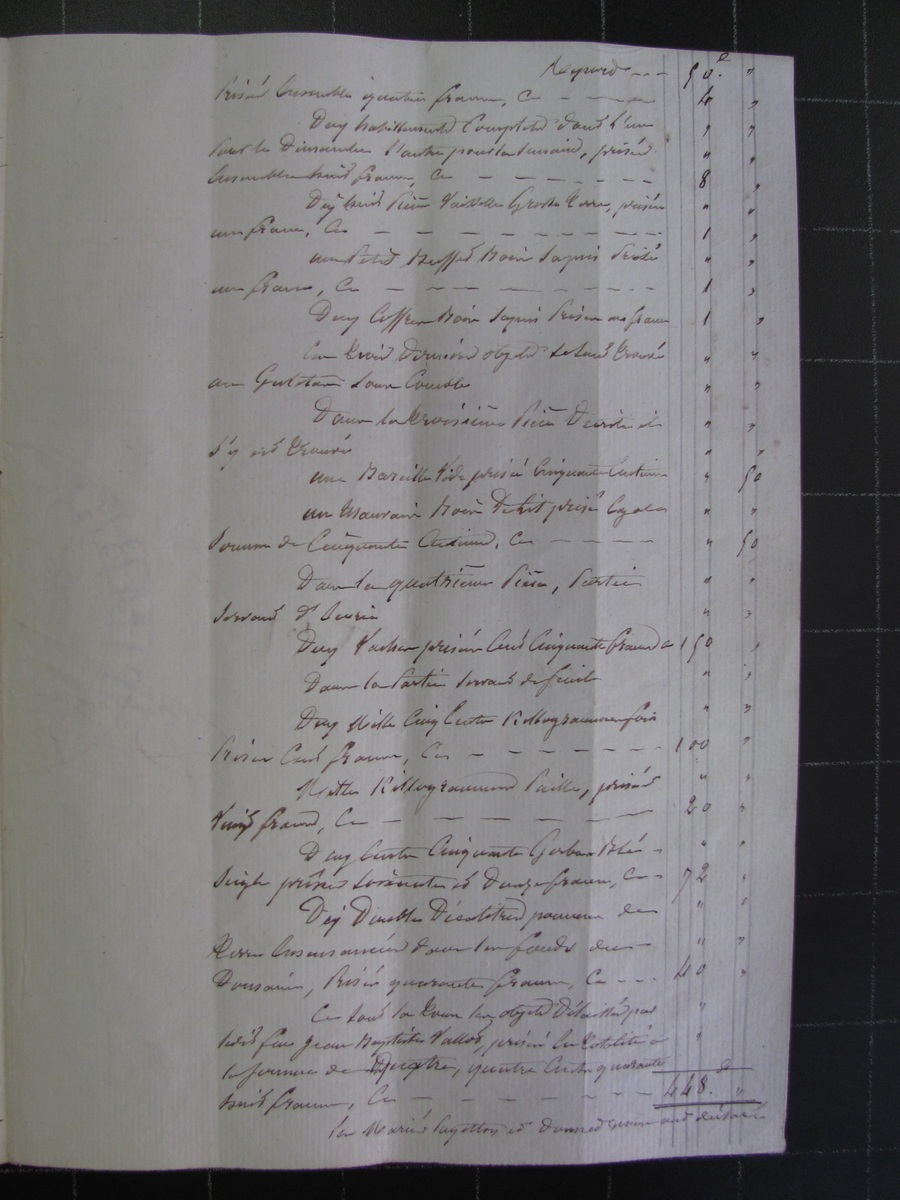 Report - - - 50. "
Prisés Ensemble quatre francs, Ce - - - - 4 "
Deux habillements Complets dont l'un " "
Pour les Dimanches l'autre pour la semaine, prisés " "
Ensemble huit francs, Ce - - - - - - 8 "
Dix huit Pièces Vaisselle Grosse Terre, prisées " "
un franc, Ce - - - - - - - - 1 "
un Petit Buffet Bois Sapin Prisé " "
un franc, Ce - - - - - - - 1 "
Deux Coffres Bois Sapin Prisés un franc 1 "
Ces trois derniers objets se sont trouvés " "
au Galetas sous Comble " "
Dans la troisième Pièce " "
S'y est trouvé " "
une Barrille Vide prisée Cinquante Centimes " 50
un Mauvais Bois De Lit prisé la " "
Somme de Cinquante Centimes, Ce - - - - " 50
Dans la quatrième Pièce, Partie " "
Servant D'Ecurie " "
Deux Vaches prisées Cent Cinquante francs Ce 150 "
Dans la Partie Servant de fenil " "
Deux Mille Cinq Cents Killogrammes foin " "
Prisés Cent francs, Ce - - - - - - 100 "
Mille Killogrammes Paille, prisés " "
Vingt francs, Ce - - - - - - - 20 "
Deux Cents Cinquante Gerbes Blé - " "
Seigle prisées Soixante et Douze francs, Ce - 72 "
Dix Doubles Décalitres pommes de " "
Terre Ensemencées dans les fonds du - " "
Domaine, Prisés quarante francs, Ce - - - 40 "
Ce sont là tous les objets Délaissés par "
ledit feu Jean Baptiste Vallos, prisés En totalité à "
la somme de quatre Cents quarante
huit francs, Ce - - - - - - - 448. "
Les Mariés Payetton et